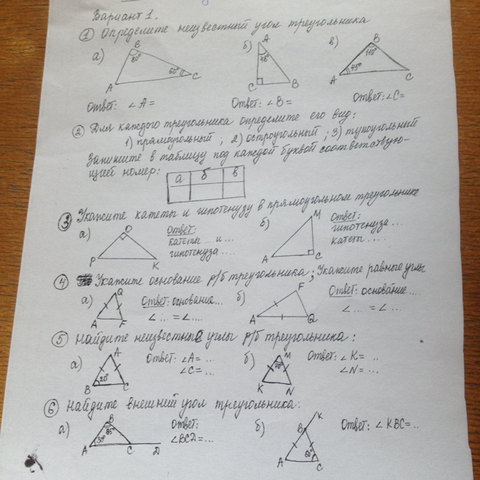 Вариант 1.
① Определите неизвестный угол треугольника
а) б) в)
B A B
60° C 110°
A C B A 45° C
Ответ: ∠A= Ответ: ∠B= Ответ: ∠C=
② Для каждого треугольника определите его вид:
1) прямоугольный, 2) остроугольный; 3) тупоугольный
Запишите в таблицу под каждой буквой соответствую-
щий номер:
а б в
③ Укажите катеты и гипотенузу в прямоугольном треугольнике
а) O Ответ: б) M Ответ:
катеты ... и ... гипотенуза ...
гипотенуза ... катеты ...
P K A C
④ Укажите основание р/б треугольника; Укажите равные углы
а) Q Ответ: основание... б) F Ответ: основание...
A F ∠... = ∠... A Q ∠... = ∠...
⑤ Найдите неизвестные углы р/б треугольника:
а) A Ответ: ∠A= ... б) M Ответ: ∠K= ..
B C ∠C= ... K N ∠N= ...
⑥ Найдите внешний угол треугольника.
а) B Ответ: б) K Ответ: ∠KBC= ..
∠BCD= ... B
A C D A C